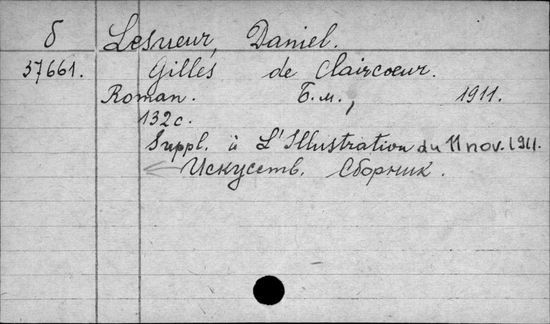 б Lesueur, Daniel.
37661. Gilles de Claircoeur.
Roman. Б.м., 1911.
132 с.
Suppl. à L'Illustration du 11 nov. 1911.
Искусств. Сборник.